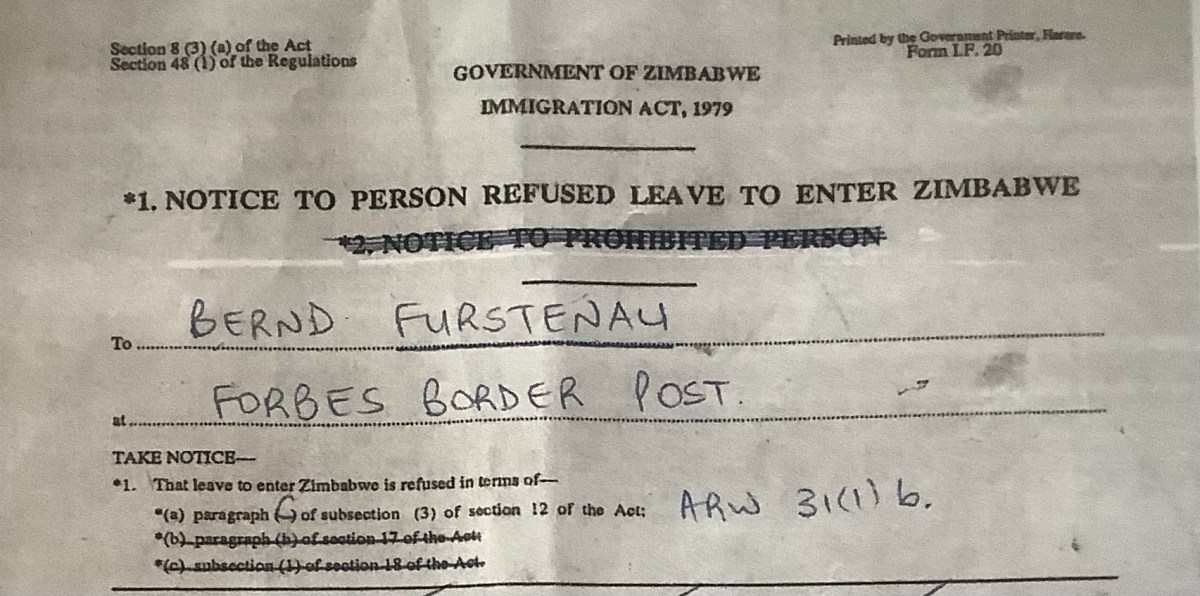 Section 8 (3) (a) of the Act
Section 48 (1) of the Regulations
Printed by the Government Printer, Harare.
Form I.F. 20
GOVERNMENT OF ZIMBABWE
IMMIGRATION ACT, 1979
*1. NOTICE TO PERSON REFUSED LEAVE TO ENTER ZIMBABWE
*2. NOTICE TO PROHIBITED PERSON
To BERND FURSTENAU
at FORBES BORDER POST.
TAKE NOTICE—
*1. That leave to enter Zimbabwe is refused in terms of—
*(a) paragraph of subsection (3) of section 12 of the Act; ARW 31(1) b.
*(b) paragraph (b) of section 17 of the Act;
*(c) subsection (1) of section 18 of the Act.